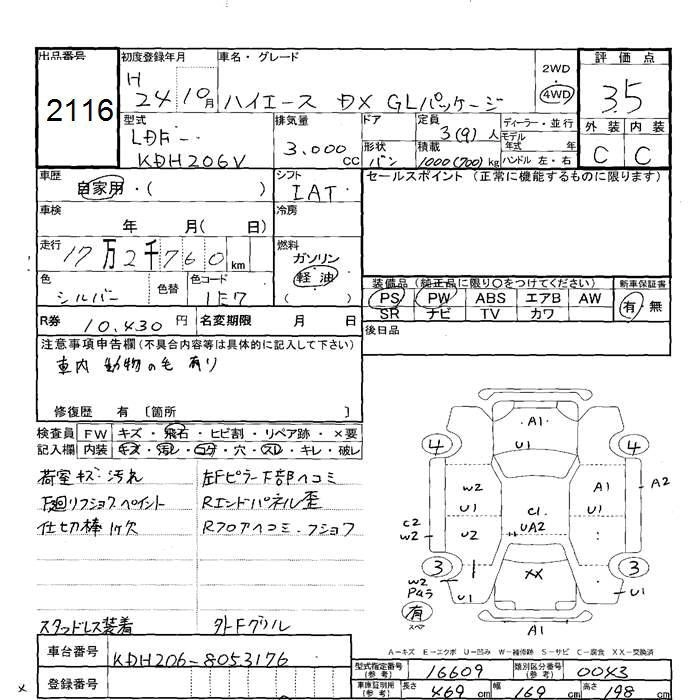 出品番号
2116
初度登録年月
H 24 10月
車名・グレード
ハイエース DX GLパッケージ
2WD・4WD
評価点
3.5
外装 内装
C C
型式
LDF-
KDH206V
排気量
3.000 CC
ドア
形状
バン
定員
3(9)人
積載
1000(700)kg
ディーラー・並行
モデル年式 年
ハンドル 左・右
車歴
自家用・( )
シフト
IAT
セールスポイント(正常に機能するものに限ります)
車検
年 月( 日)
冷房
走行
17万2千760km
燃料
ガソリン
軽油
( )
色
シルバー
色替
色コード
1E7
装備品(純正品に限り○をつけてください)
PS PW ABS エアB AW
SR ナビ TV カワ
新車保証書
有・無
R券 10,430円 名変期限 月 日
後日品
注意事項申告欄(不具合内容等は具体的に記入して下さい)
車内 動物の毛 有り
修復歴 有〔箇所 〕
検査員 FW キズ・飛石・ヒビ割・リペア跡・×要
記入欄 内装 キズ・汚レ・コゲ・穴・スレ・キレ・破レ
荷室キズ・汚れ
左Fピラー下部ヘコミ
下廻リフショフペイント
Rエンドパネル歪
仕切棒1ケ欠
Rフロアヘコミ・フショフ
スタッドレス装着
外Fグリル
A1
U1
4 4
W2 A1 A2
U1 U1
C1
UA2
C2
W2
U2
3 3
XX
W2
Pキラ
U1 U1
有
スペア
A1
A-キズ E-エクボ U-凹み W-補修跡 S-サビ C-腐食 XX-交換済
車台番号 KDH206-8053176
登録番号
型式指定番号(参考) 16609 類別区分番号(参考) 0043
車庫証明用(参考) 長さ 469cm 幅 169cm 高さ 198cm
×